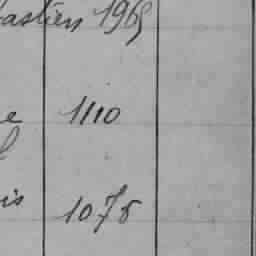 astien 1965
e 1110
is 1075